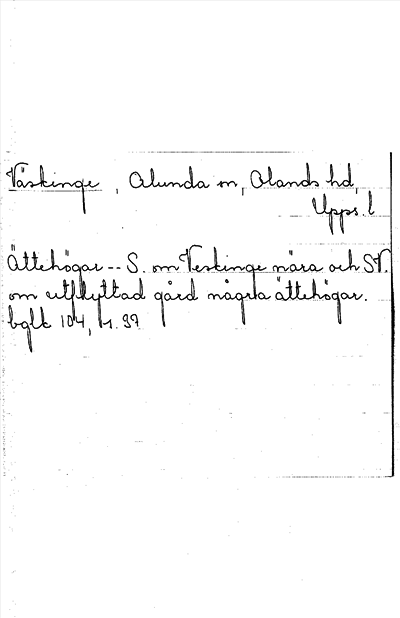 Väskinge, Alunda sn, Olands hd,
Upps. l
Ättehögar -- S. om Veskinge nära och SV.
om utflyttad gård några ättehögar.
bglt 104, s. 37